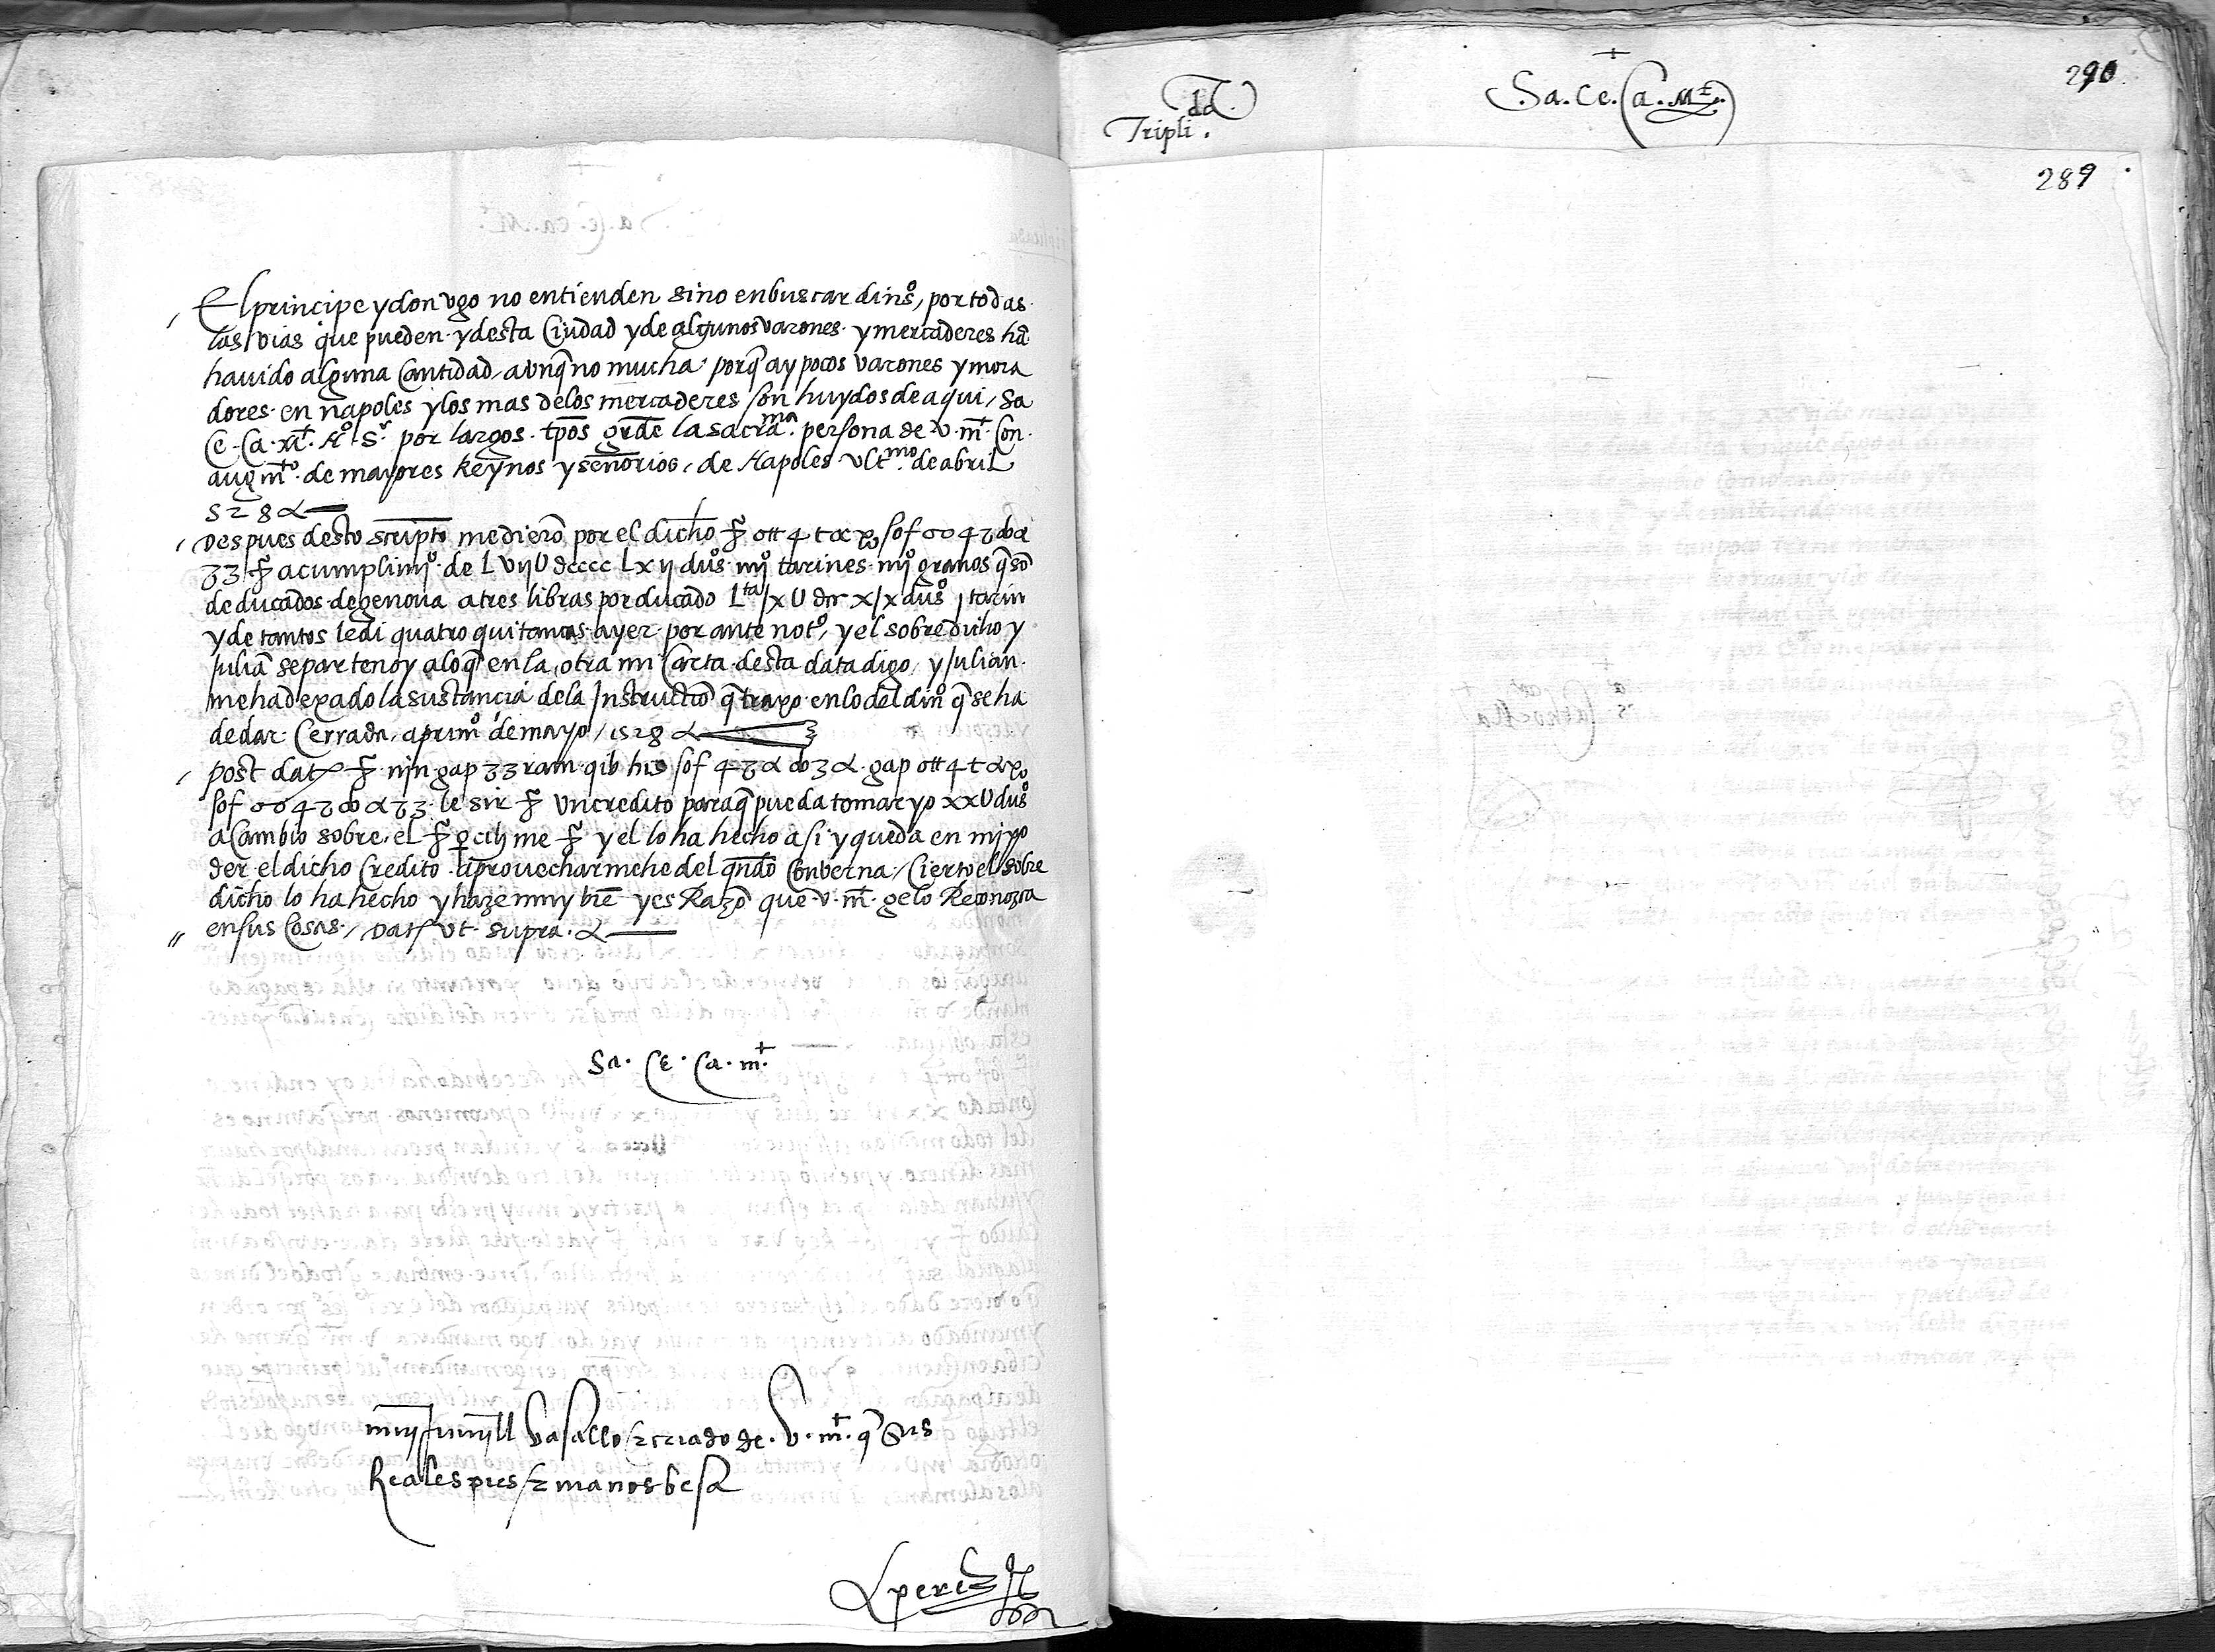 El principe y don vgo no entienden sino en buscar dinº, por todas
las vias que pueden y desta Ciudad y de algunos varones y mercaderes hã
hauido alguna Cantidad avnq̃ no mucha porq̃ ay pocos varones y mora
dores en napoles y los mas delos mercaderes son huydos de aqui, Sa
Ce. Ca. Mt. Rº. Sr. por largos tp̃os grde la sacra.ma persona de v. mt. Con
augmto. de mayores Reynos y señorios, de Napoles vltmo. de abril
528
Despues desto scripto me dierõ por el dicho
a cumplimjº. de L vij U dcccc Lx ij duºs iiijº tarines iiijº granos q̃ sõ
de ducados de genoua a tres libras por ducado Lta jx U xjx duºs j tarin
y de tantos le di quatro quitancas ayer por ante notº, y el sobredicho y
Juliã se parten oy alo q̃ en la otra mi Carta desta data digo, y Julian
me ha dexado la sustancia dela Instructiõ q̃ traxo en lo del dinº q̃ se ha
de dar. Cerrada, a primº de mayo, 1528
post dat
le sir vn credito para q̃ pueda tomar yo xx U duºs
a Cambio sobre el me y el lo ha hecho asi y queda en mj po
der el dicho Credito aprouecharmehe del qñdo Conuerna, Cierto el sobre
dicho lo ha hecho y haze muy biẽ y es Razõ que v. mt. gelo Reconozca
en sus Cosas, Dat vt supra.
Sa. Ce. Ca. mt.
muy humyll vasallo e criado de. v. mt. q̃ sus
Reales pies e manos besa
L perez
Tripli.da
Sa. Ce. Ca. Mt.
290
289